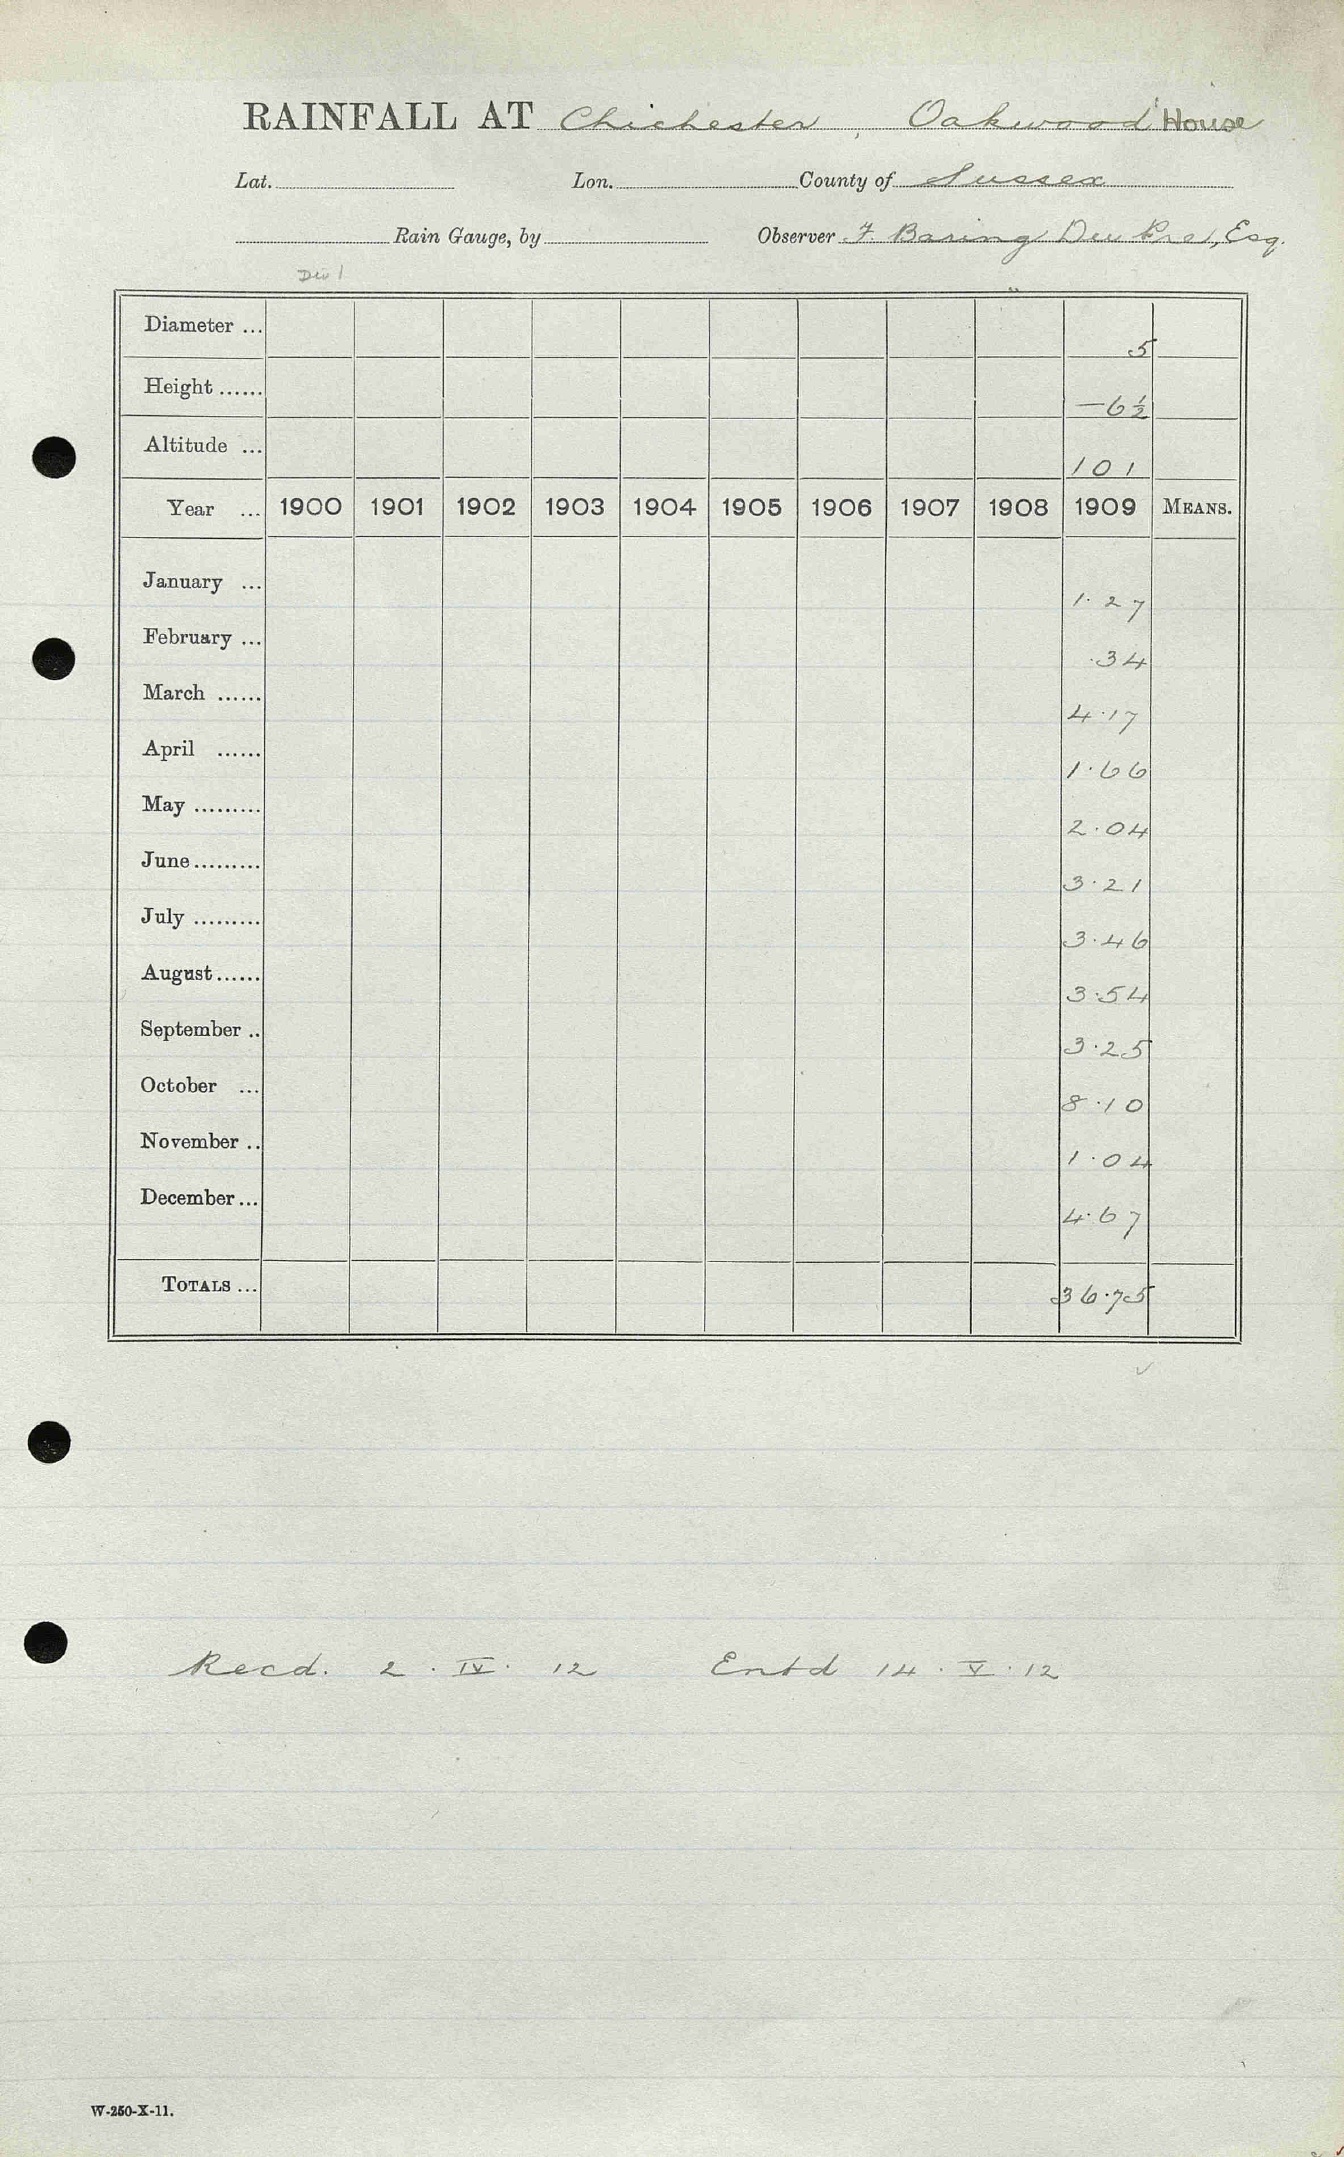 RAINFALL AT Chichester, Oakwood House
Lat. Lon. County of Sussex
Rain Gauge, by Observer F. Baring Du Pre, Esq.
Div 1
Diameter ... 5
Height ...... —6½
Altitude ... 101
Year ... 1900 1901 1902 1903 1904 1905 1906 1907 1908 1909 MEANS.
January ... 1.27
February ... .34
March ...... 4.17
April ...... 1.66
May ......... 2.04
June ......... 3.21
July ......... 3.46
August ...... 3.54
September .. 3.25
October ... 8.10
November .. 1.04
December ... 4.67
TOTALS ... 36.75
Recd. 2 . IV . 12 Entd 14 . V . 12
W-250-X-11.